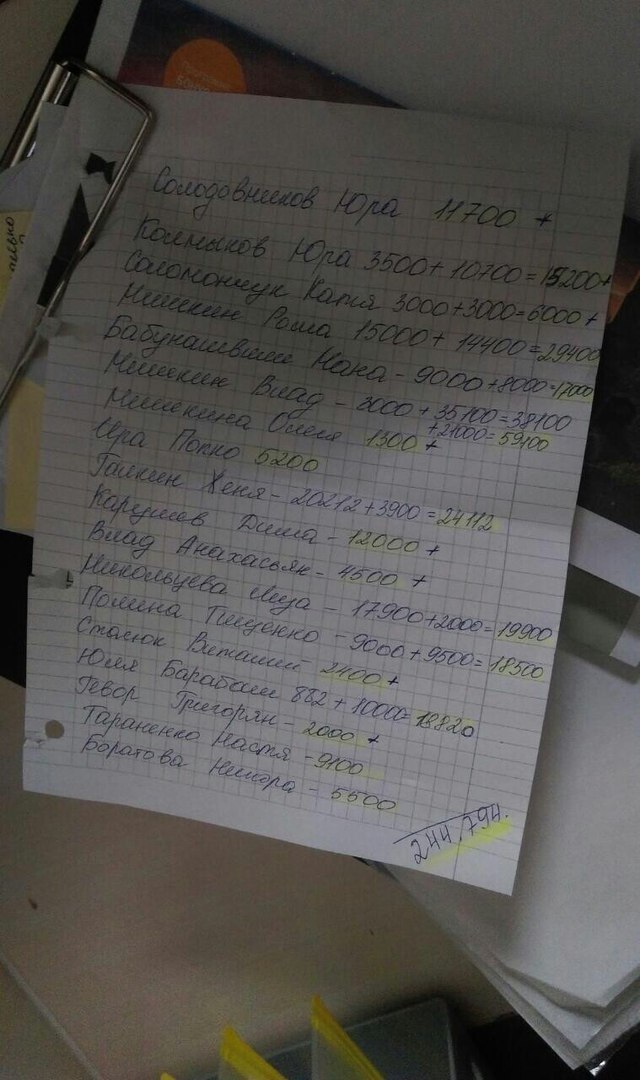 Солодовников Юра 11700 +
Колмыков Юра 3500 + 10700 = 15200 +
Соломончук Катя 3000 + 3000 = 6000 +
Мишкин Рома 15000 + 14400 = 29400
Бабунашвили Нана - 9000 + 8000 = 17000
Мишкин Влад - 3000 + 35100 = 38100
+ 21000 = 59100
Мишкина Оля 1300 +
Ира Попко 5200
Галкин Женя - 20212 + 3900 = 24112
Карушев Дима - 12000 +
Влад Анахасьяк - 4500 +
Никольцева Лиза - 17900 + 2000 = 19900
Полина Тищенко - 9000 + 9500 = 18500
Виталий - 2400 +
Юля Барабаш 882 + 1000 = 18820
Гевор Григорян - 2000 +
Тараненко Настя - 9100
Боратова Нигора - 5500
244.794.